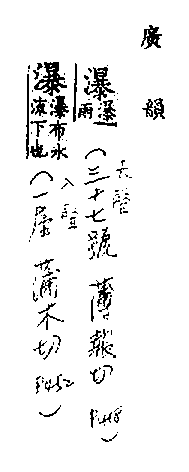 廣韻
瀑 瀑雨
(去聲
三十七號 薄報切 P.418)
瀑 瀑布水流下也
(入聲
一屋 蒲木切 P.452)